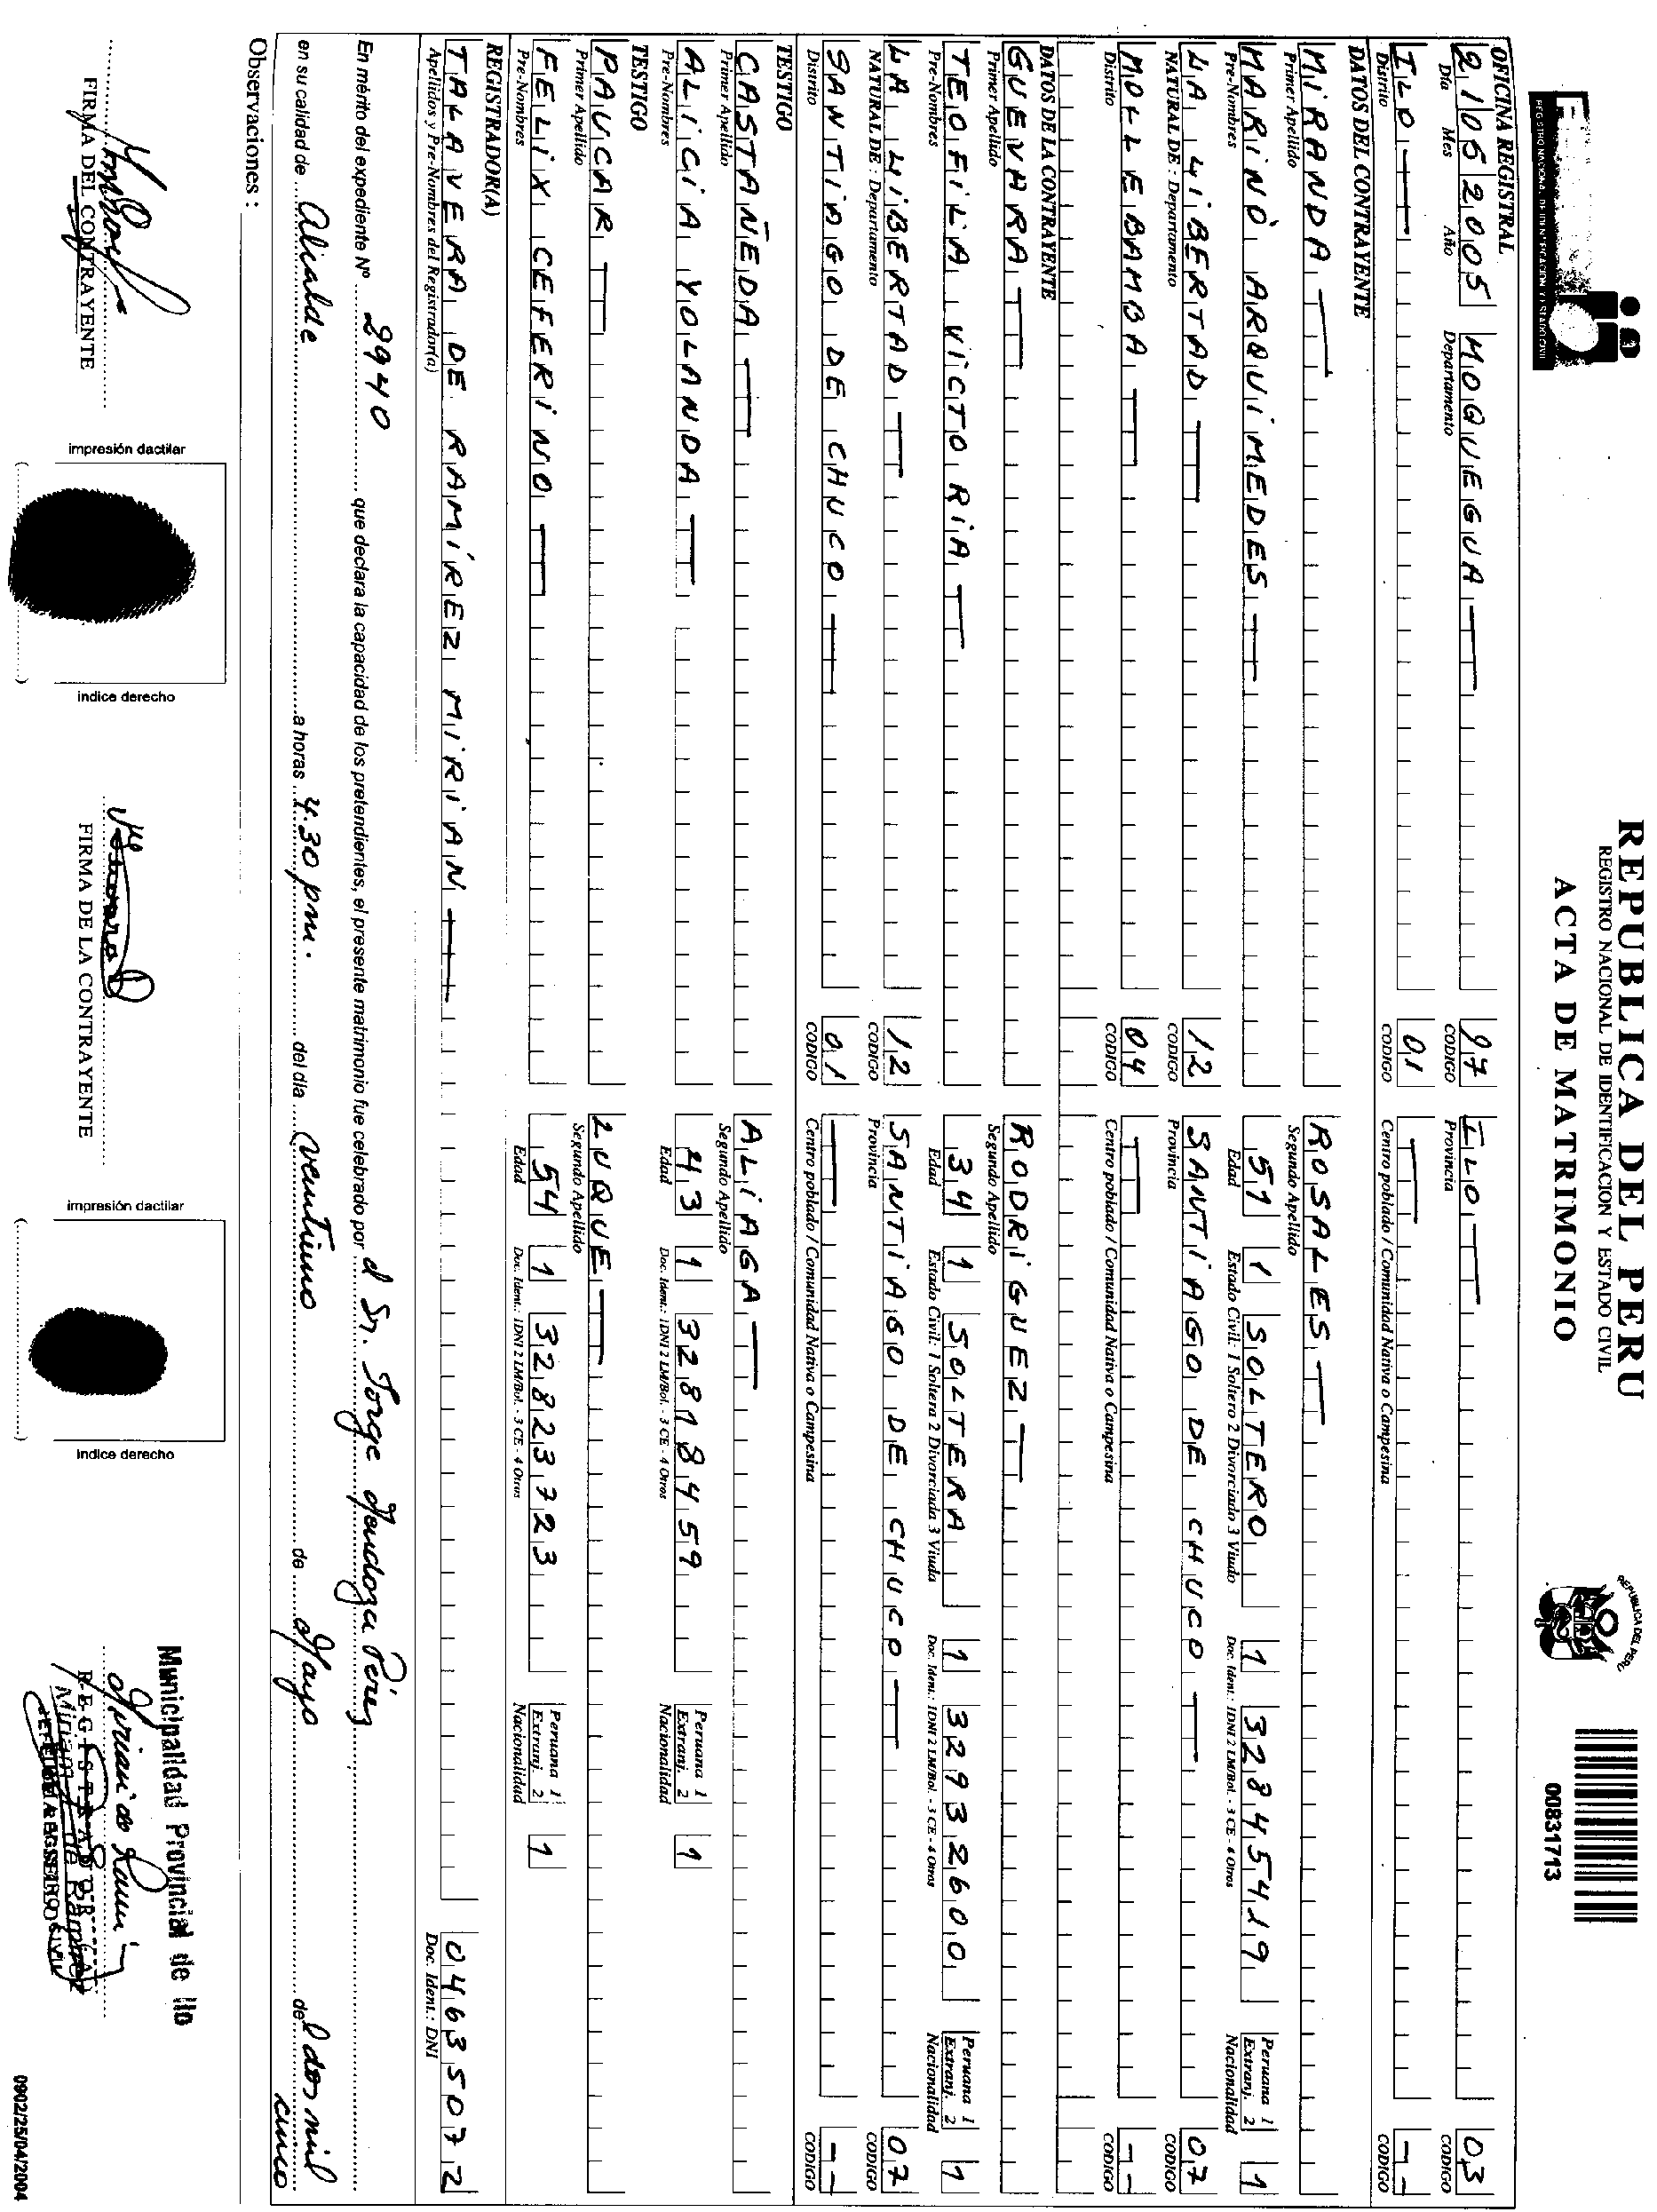 REPUBLICA DEL PERU
REGISTRO NACIONAL DE IDENTIFICACION Y ESTADO CIVIL
ACTA DE MATRIMONIO
REGISTRO NACIONAL DE IDENTIFICACION Y ESTADO CIVIL
REPUBLICA DEL PERU
00831713
OFICINA REGISTRAL
21 05 2005 MOQUEGUA 17 ILO 03
Día Mes Año Departamento CODIGO Provincia CODIGO
ILO 01 --
Distrito CODIGO Centro poblado / Comunidad Nativa o Campesina CODIGO
DATOS DEL CONTRAYENTE
MIRANDA ROSALES
Primer Apellido Segundo Apellido
MARINO ARQUIMEDES 51 1 SOLTERO 1 32845419 Peruana 1 Extranj. 2 1
Pre-Nombres Edad Estado Civil: 1 Soltero 2 Divorciado 3 Viudo Doc. Ident.: 1DNI 2 LM/Bol. - 3 CE - 4 Otros Nacionalidad
LA LIBERTAD 12 SANTIAGO DE CHUCO 07
NATURAL DE : Departamento CODIGO Provincia CODIGO
MOLLEBAMBA 04 --
Distrito CODIGO Centro poblado / Comunidad Nativa o Campesina CODIGO
DATOS DE LA CONTRAYENTE
GUEVARA RODRIGUEZ
Primer Apellido Segundo Apellido
TEOFILA VICTORIA 34 1 SOLTERA 1 32932600 Peruana 1 Extranj. 2 1
Pre-Nombres Edad Estado Civil: 1 Soltera 2 Divorciada 3 Viuda Doc. Ident.: 1DNI 2 LM/Bol. - 3 CE - 4 Otros Nacionalidad
LA LIBERTAD 12 SANTIAGO DE CHUCO 07
NATURAL DE : Departamento CODIGO Provincia CODIGO
SANTIAGO DE CHUCO 01 --
Distrito CODIGO Centro poblado / Comunidad Nativa o Campesina CODIGO
TESTIGO
CASTAÑEDA ALIAGA
Primer Apellido Segundo Apellido
ALICIA YOLANDA 43 1 32818459 Peruana 1 Extranj. 2 1
Pre-Nombres Edad Doc. Ident.: 1DNI 2 LM/Bol. - 3 CE - 4 Otros Nacionalidad
TESTIGO
PAUCAR LUQUE
Primer Apellido Segundo Apellido
FELIX CEFERINO 54 1 32823723 Peruana 1 Extranj. 2 1
Pre-Nombres Edad Doc. Ident.: 1DNI 2 LM/Bol. - 3 CE - 4 Otros Nacionalidad
REGISTRADOR(A)
TALAVERA DE RAMÍREZ MIRIAN 04635072
Apellidos y Pre-Nombres del Registrador(a) Doc. Ident.: DNI
En mérito del expediente Nº 2940 que declara la capacidad de los pretendientes, el presente matrimonio fue celebrado por el Sr. Jorge Mendoza Perez
en su calidad de Alcalde a horas 4.30 pm. del día veintiuno de Mayo del dos mil cinco
Observaciones :
FIRMA DEL CONTRAYENTE
impresión dactilar
indice derecho
FIRMA DE LA CONTRAYENTE
impresión dactilar
indice derecho
Municipalidad Provincial de Ilo
REGISTRADOR
0902/25/04/2004